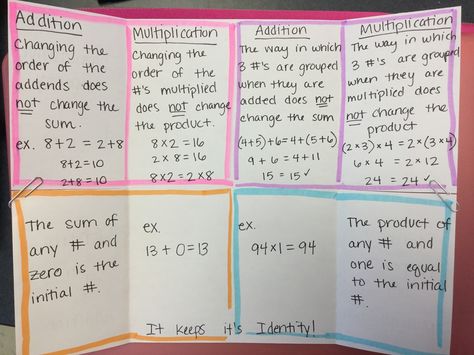 Addition
Changing the
order of the
addends does
not change the
sum.
ex. 8+2 = 2+8
8+2=10
2+8=10
Multiplication
Changing the
order of the
#'s multiplied
does not change
the product.
8 x 2 = 16
2 x 8 = 16
8 x 2 = 2 x 8
Addition
The way in which
3 #'s are grouped
when they are
added does not
change the sum
(4+5)+6=4+(5+6)
9 + 6 = 4+11
15 = 15 ✓
Multiplication
The way in which
3 #'s are grouped
when they are
multiplied does
not change the
product
(2x3)x4=2x(3x4)
6 x 4 = 2 x 12
24 = 24 ✓
The sum of
any # and
zero is the
initial #.
ex.
13 + 0 = 13
ex.
94 x 1 = 94
The product of
any # and
one is equal
to the initial
#.
It keeps it's Identity!